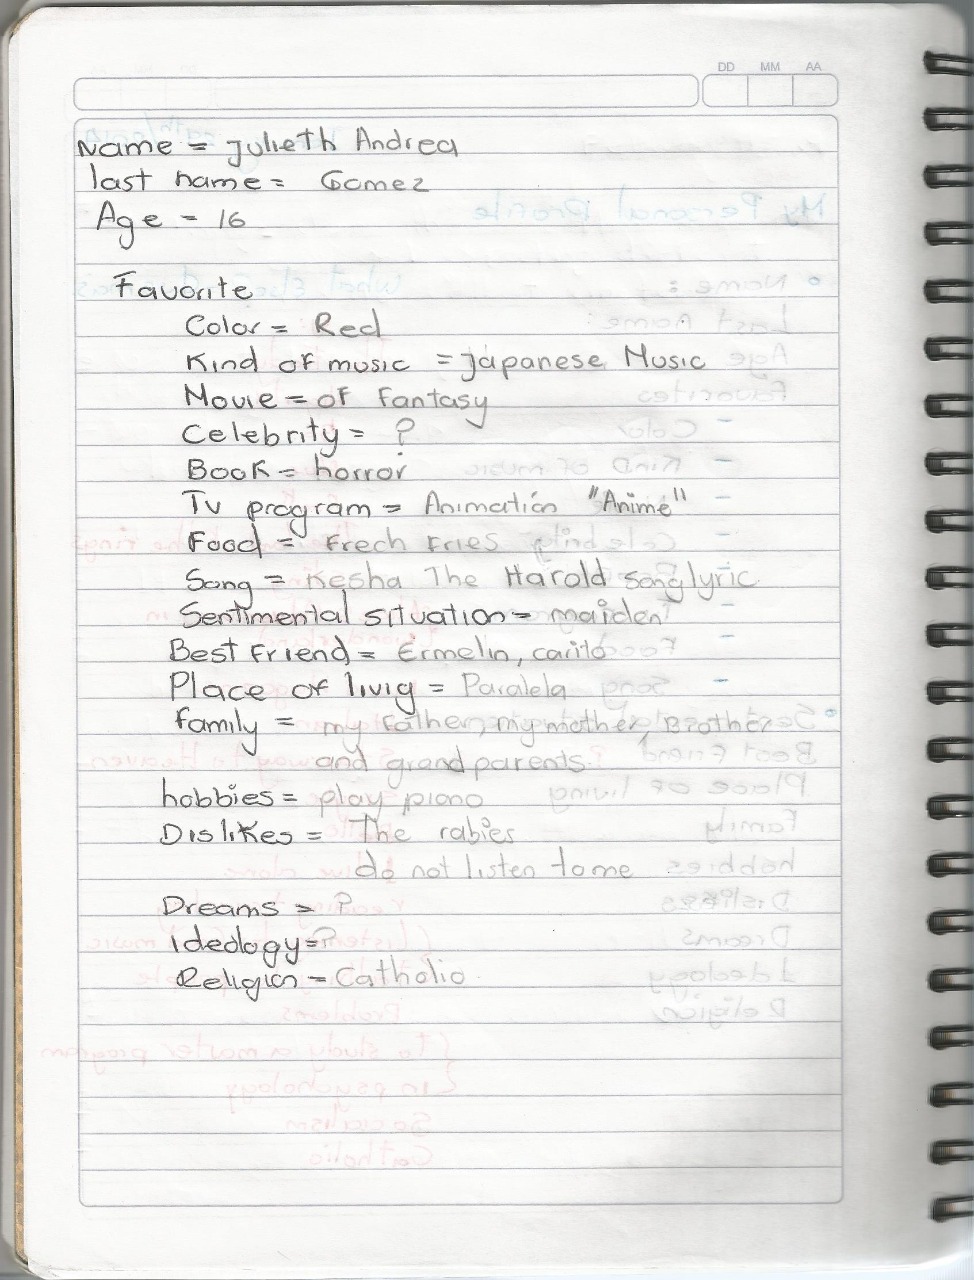 DD MM AA
Name = Julieth Andrea
last name = Gomez
Age = 16
Favorite
Color = Red
Kind of music = Japanese Music
Movie = of Fantasy
Celebrity = ?
Book = horror
Tv program = Animatión "Anime"
Food = Frech Fries
Song = Kesha The Harold song lyric
Sentimental situation = maiden
Best Friend = Ermelin, carito
Place of livig = Paralela
family = my father, my mother, Brother
and grandparents.
hobbies = play piano
Dislikes = The rabies
do not listen to me
Dreams = ?
Ideology = ?
Religion = Catholic